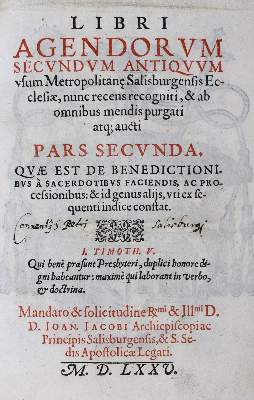 LIBRI
AGENDORVM
SECVNDVM ANTIQVVM
vsum Metropolitanę Salisburgensis Ec-
clesiæ, nunc recens recogniti, & ab
omnibus mendis purgati
atq; aucti
PARS SECVNDA,
QVÆ EST DE BENEDICTIONI-
BVS À SACERDOTIBVS FACIENDIS, AC PRO-
cessionibus: & id genus alijs, vti ex se-
quenti indice constat.
Conuentus S. Petri Salisburg
I. TIMOTH. V.
Qui benè præsunt Presbyteri, duplici honore di-
gni habeantur: maximè qui laborant in verbo,
& doctrina.
Mandato & solicitudine Rmi & Illmi D.
D. IOAN. IACOBI Archiepiscopi ac
Principis Salisburgensis, & S. Se-
dis Apostolicæ Legati.
M. D. LXXV.